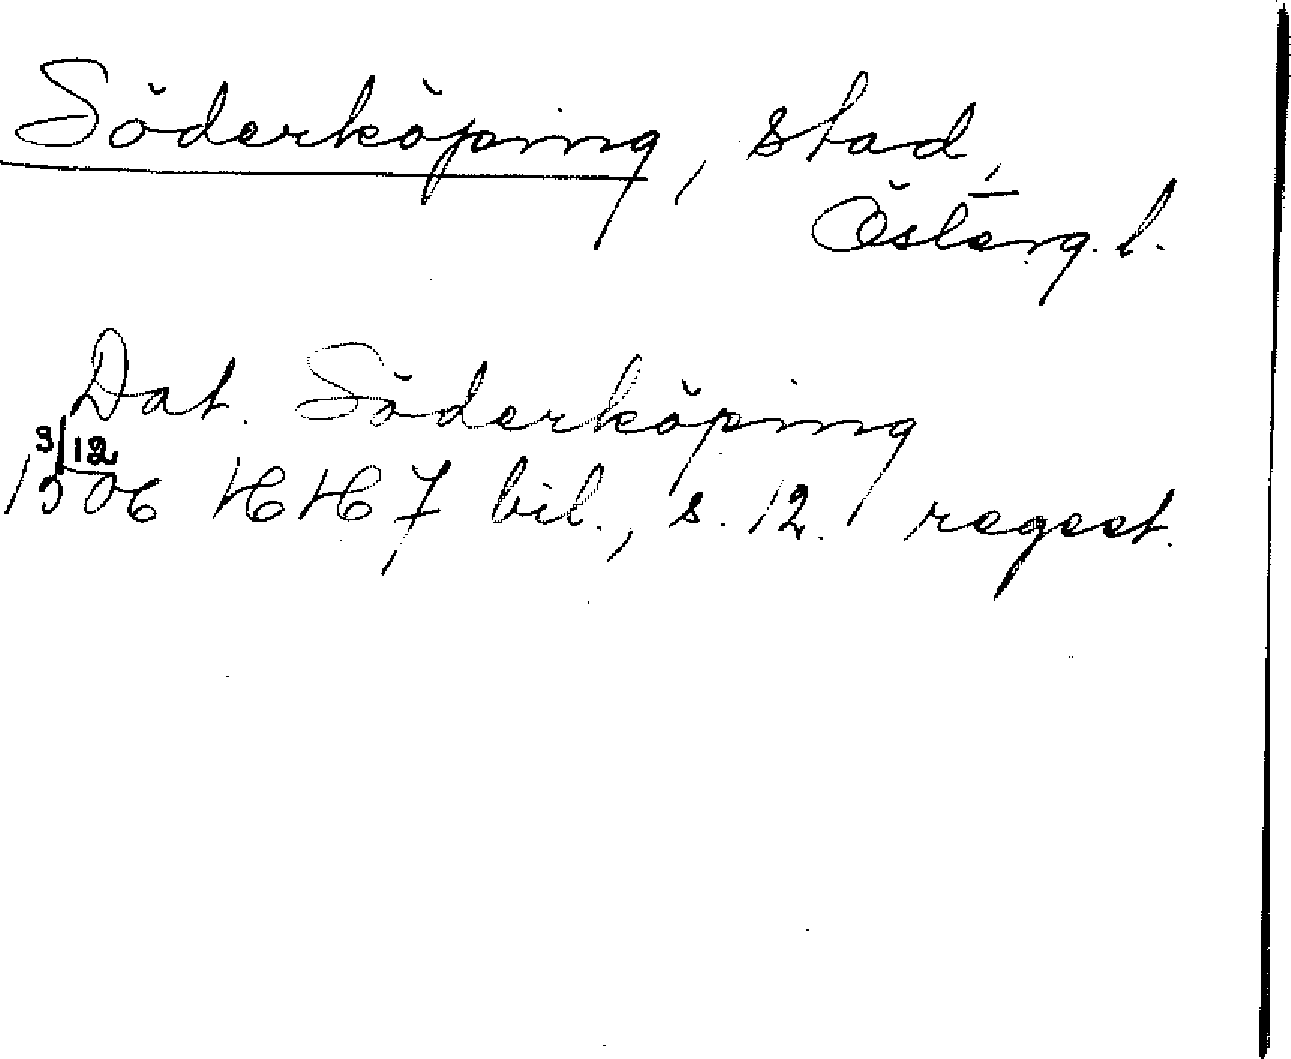 Söderköping, stad,
Österg. l.
Dat. Söderköping
3/12
1506 HH 7 bil., s. 12. regest.